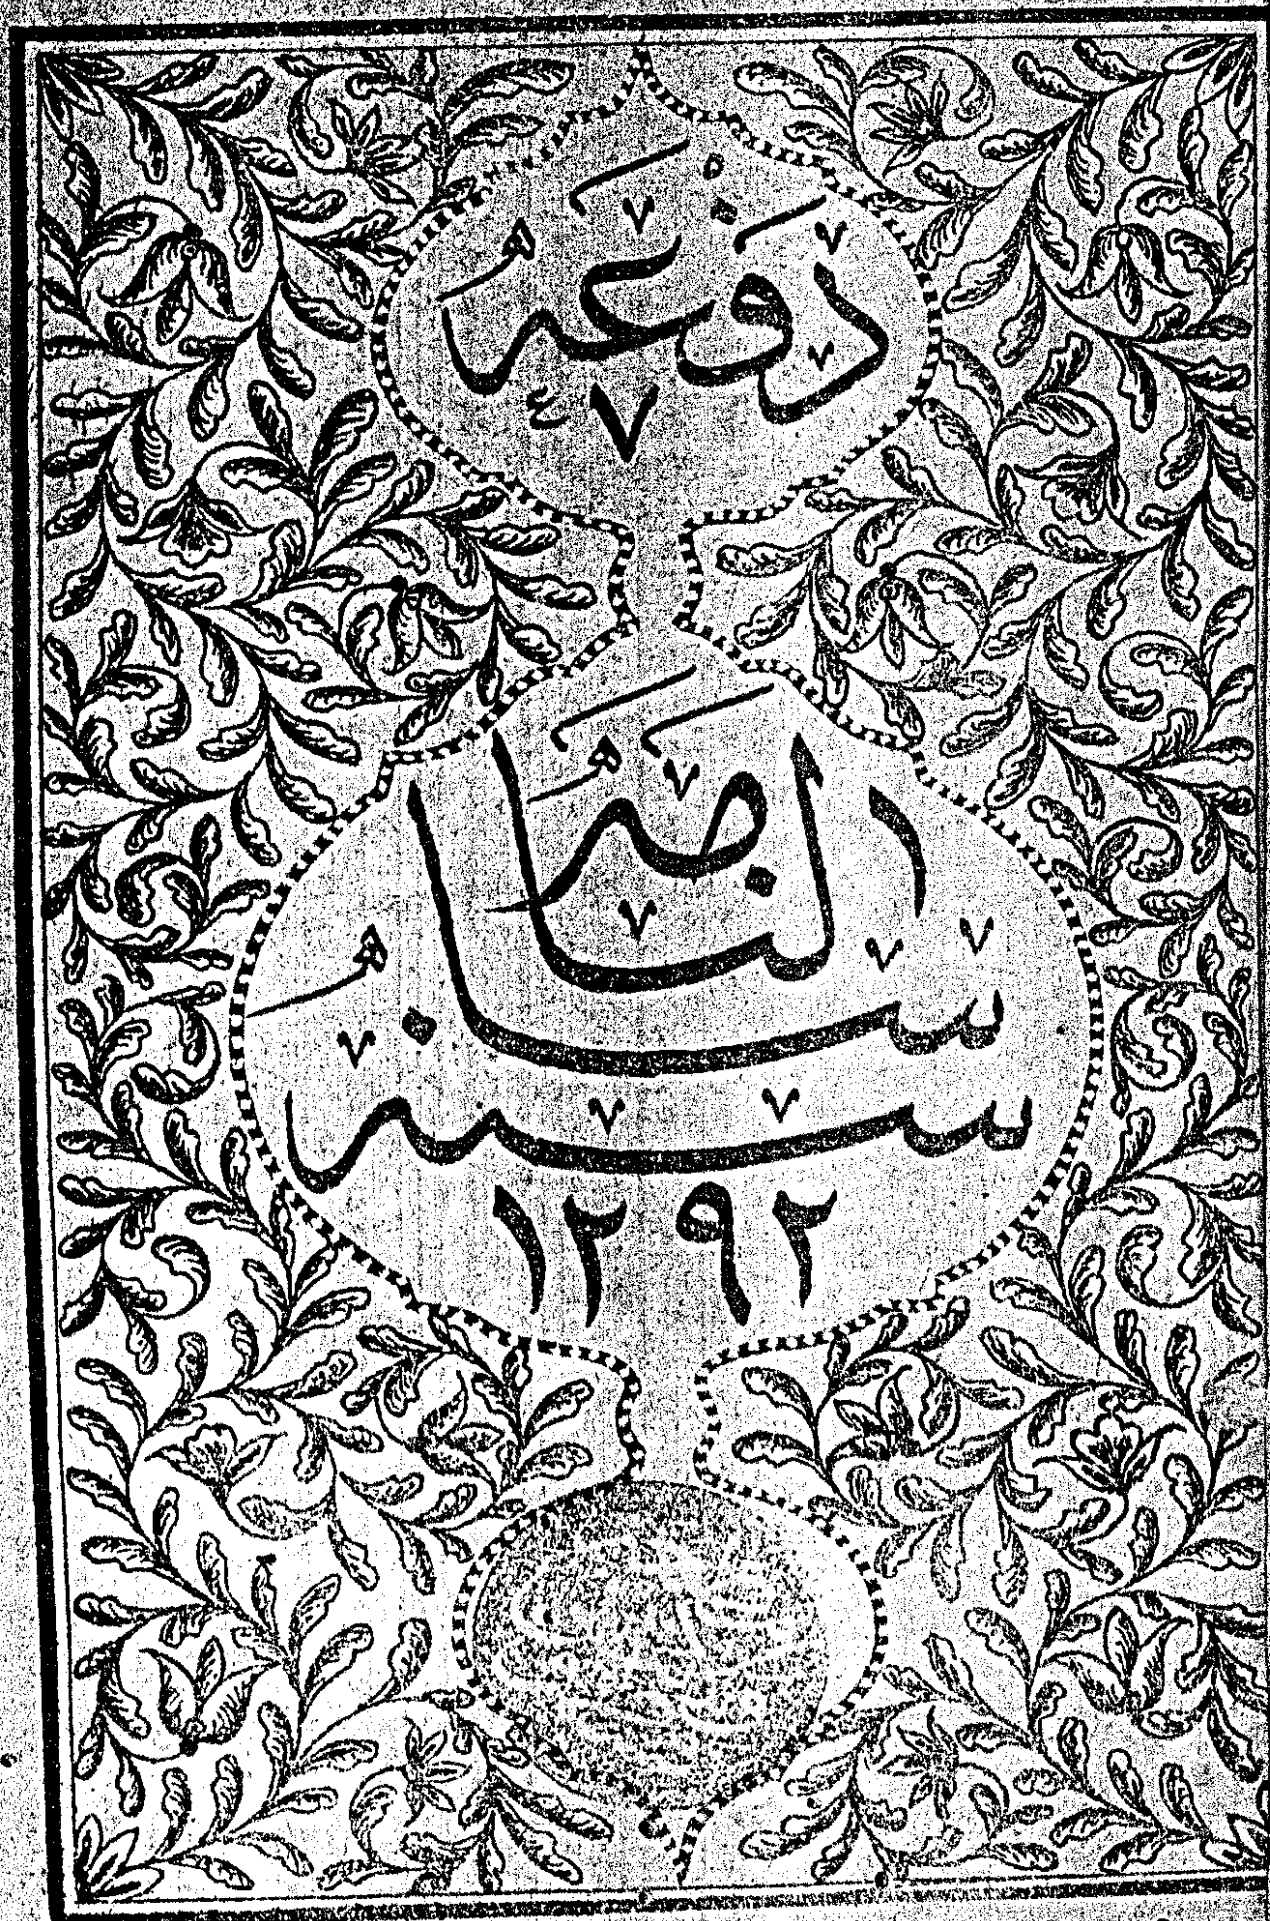 دفعه
٧
سالنامه
سنه
١٢٩٢